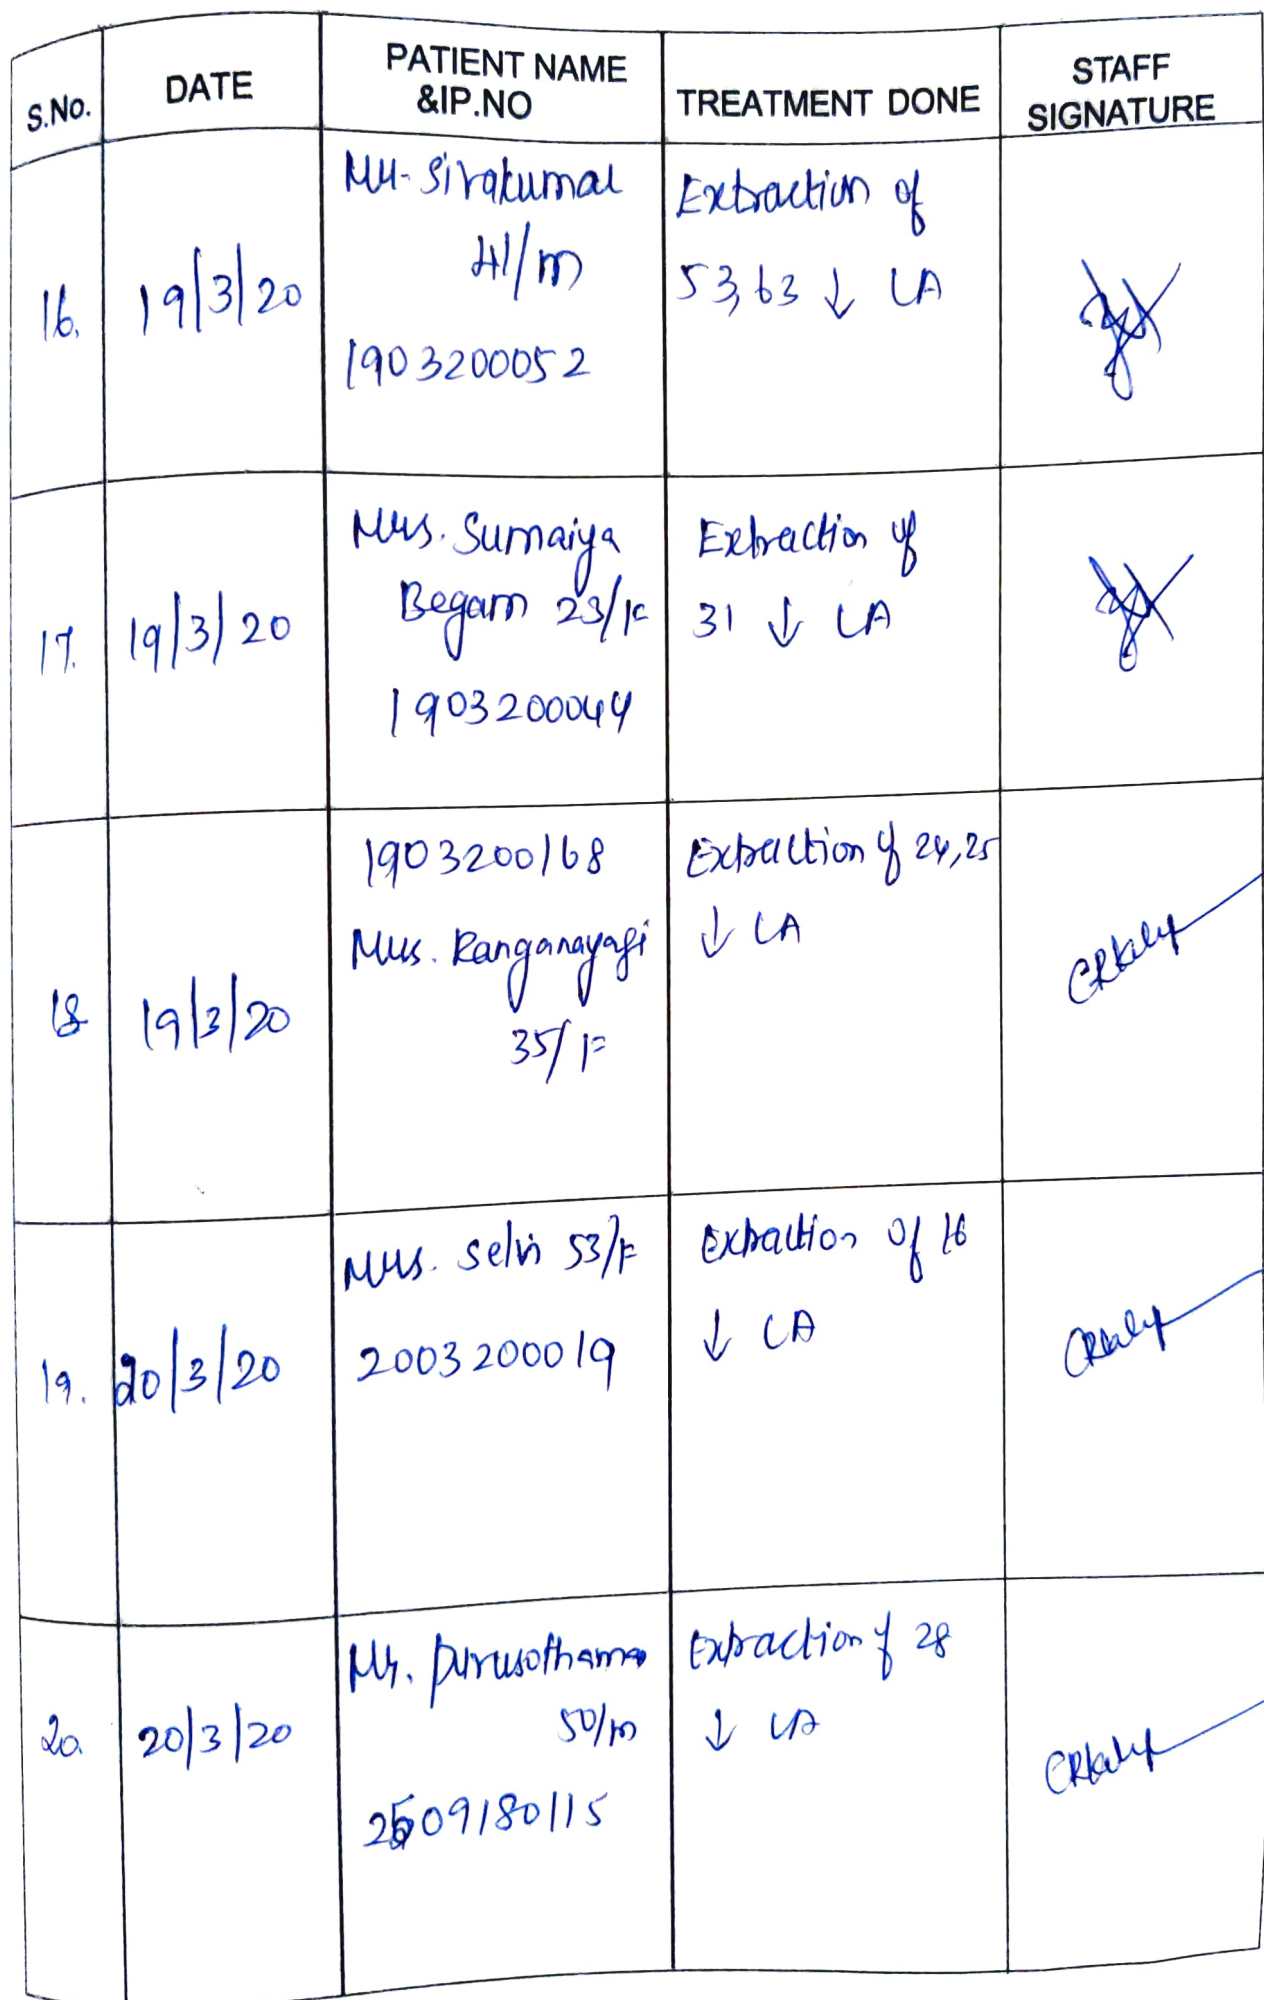 S.No. DATE PATIENT NAME &IP.NO TREATMENT DONE STAFF SIGNATURE
16. 19/3/20
Mr. Sivakumar
41/m
1903200052
Extraction of
53,63 ↓ LA
17. 19/3/20
Mrs. Sumaiya
Begam 23/F
1903200044
Extraction of
31 ↓ LA
18 19/3/20
1903200168
Mrs. Ranganayagi
35/F
Extraction of 24,25
↓ LA
19. 20/3/20
Mrs. Selvi 53/F
2003200019
Extraction of 16
↓ LA
20. 20/3/20
Mr. purusothama
50/m
2509180115
Extraction of 28
↓ LA